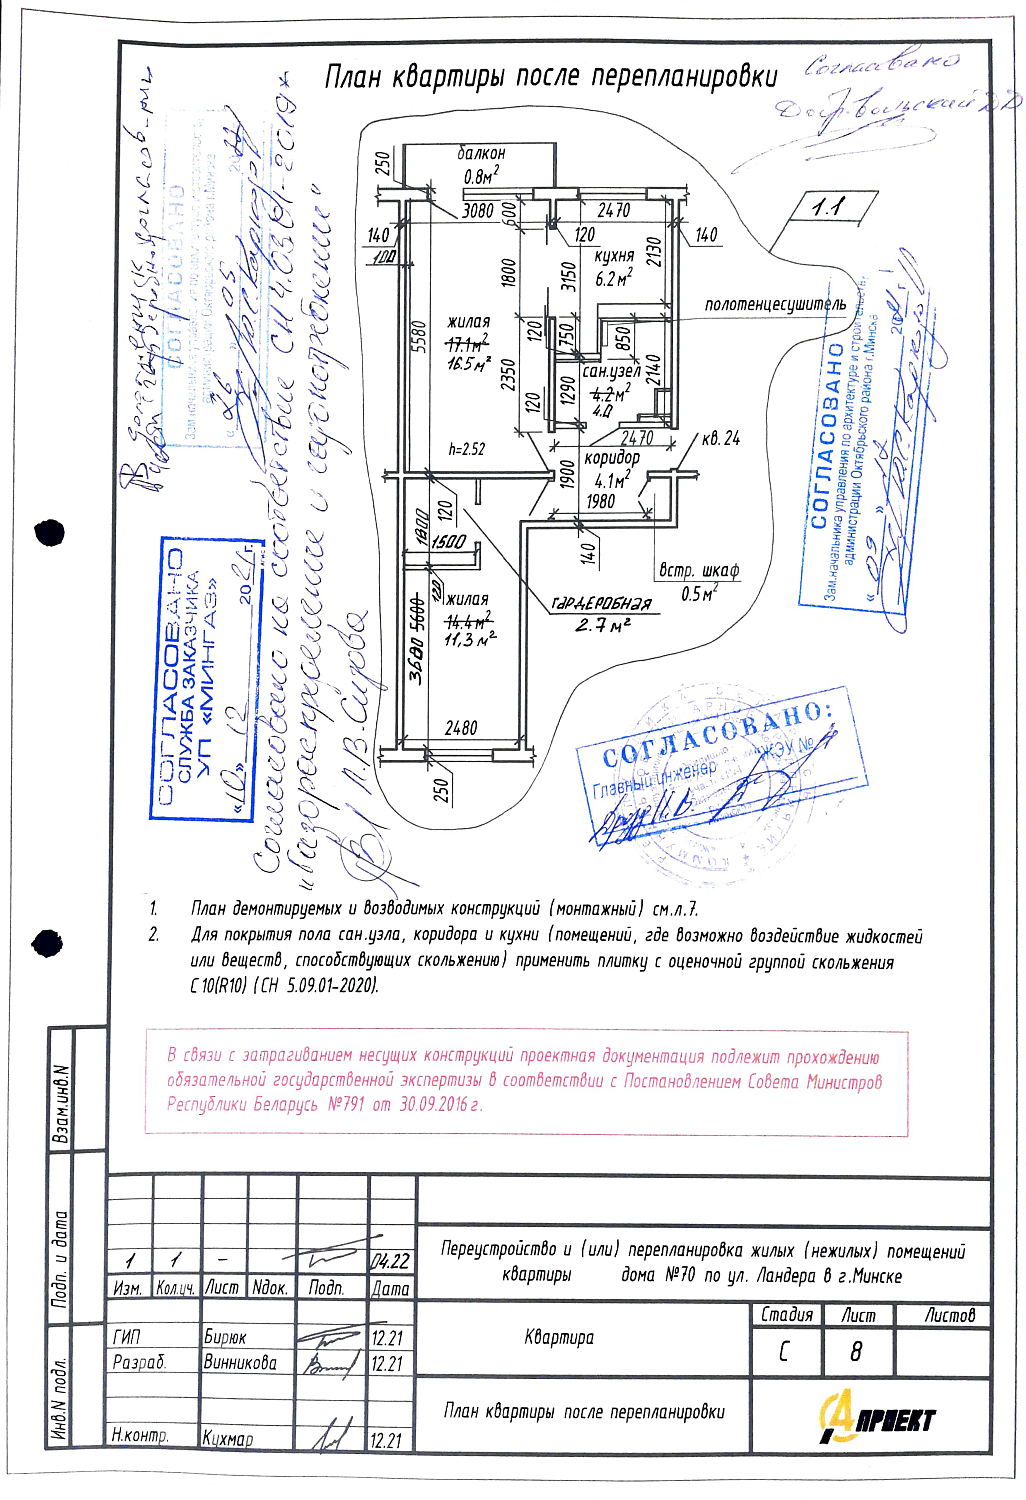 План квартиры после перепланировки
Согласовано
балкон
0.8м²
250
3080
600
2470
140
100
120
140
1.1
кухня
6.2м²
2130
1800
3150
5580
полотенцесушитель
жилая
17.1м²
16.5м²
120
750
850
2350
сан.узел
4.2м²
4.0
1290
2140
120
2470
кв.24
h=2.52
коридор
4.1м²
1900
1980
120
1800
1500
140
встр. шкаф
0.5м²
120
жилая
14.4м²
11,3м²
гардеробная
2.7м²
3680 5600
2480
250
СОГЛАСОВАНО
Зам.начальника управления по архитектуре и строительству
администрации Октябрьского района г.Минска
«09» 12 2021 г.
СОГЛАСОВАНО
«26» 05 2022
СОГЛАСОВАНО
СЛУЖБА ЗАКАЗЧИКА
УП «МИНГАЗ»
«10» 12 2021 г.
Согласовано на соответствие СН 4.03.01-2019*
"Газораспределение и газопотребление"
СОГЛАСОВАНО:
Главный инженер ЖЭУ №
1. План демонтируемых и возводимых конструкций (монтажный) см.л.7.
2. Для покрытия пола сан.узла, коридора и кухни (помещений, где возможно воздействие жидкостей
или веществ, способствующих скольжению) применить плитку с оценочной группой скольжения
С10(R10) (СН 5.09.01-2020).
В связи с затрагиванием несущих конструкций проектная документация подлежит прохождению
обязательной государственной экспертизы в соответствии с Постановлением Совета Министров
Республики Беларусь №791 от 30.09.2016г.
Взам.инв.N
Подп. и дата
Инв.N подл.
1 1 – 04.22
Изм. Кол.уч. Лист Nдок. Подп. Дата
Переустройство и (или) перепланировка жилых (нежилых) помещений
квартиры дома №70 по ул. Ландера в г.Минске
ГИП Бирюк 12.21
Разраб. Винникова 12.21
Н.контр. Кухмар 12.21
Квартира
Стадия Лист Листов
С 8
План квартиры после перепланировки
А ПРОЕКТ